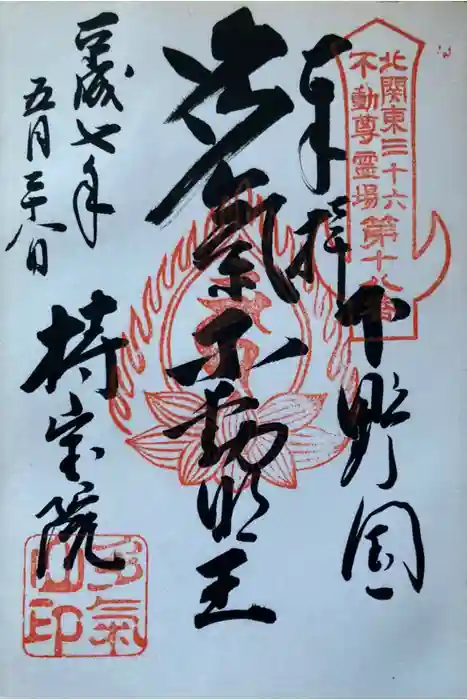 北関東三十六
不動尊霊場第十八番
奉拝
下野國
多氣不動明王
平成七年
五月二十八日
持宝院
多氣
山印